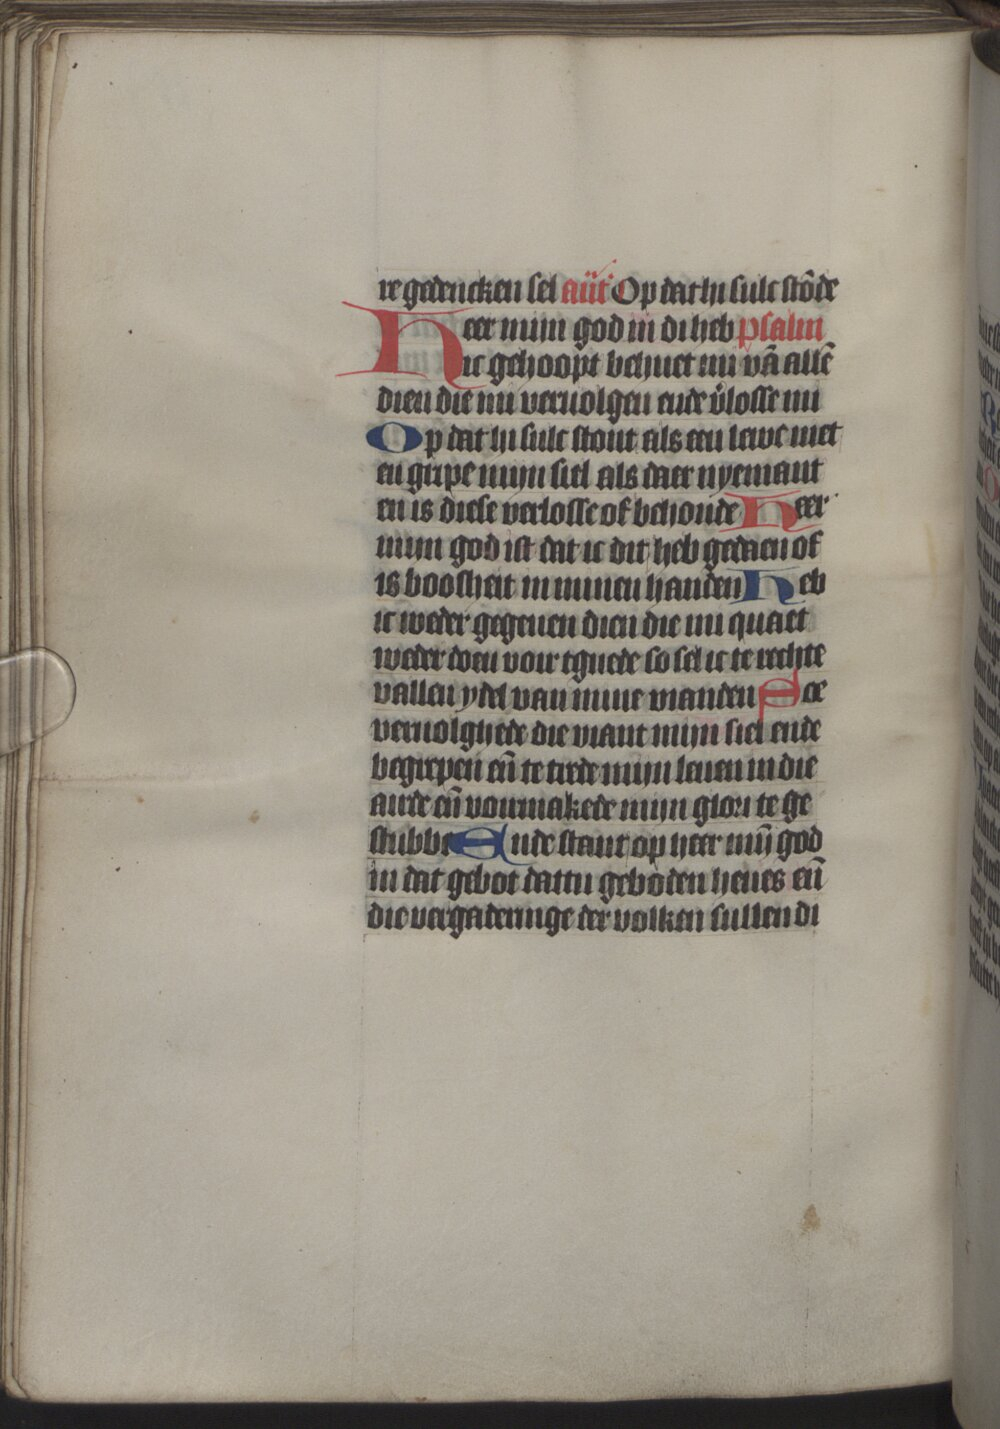 re gedencken sel añt Op dat hi sulc stōde
Heer mijn god in di heb psalm
ic gehoopt behuet mi vā allē
dien die mi veruolgen ende v̓losse mi
Op dat hi sulc stont als een lewe niet
en gripe mijn siel als daer nyemant
en is diese verlosse of behoude Heer
mijn god ist dat ic dit heb gedaen of
is boosheit in minen handen Heb
ic weder gegeuen dien die mi quaet
weder doen voir tguede so sel ic te rechte
vallen ydel van mine vianden Soe
veruolghede die viant mijn siel ende
begripen eñ te trede mijn leuen in die
airde eñ voirmakede mijn glori te ge
stubbe Ende stant op heer mijn god
in dat gebot dattu geboden heues eñ
die vergaderinge der volken sullen di